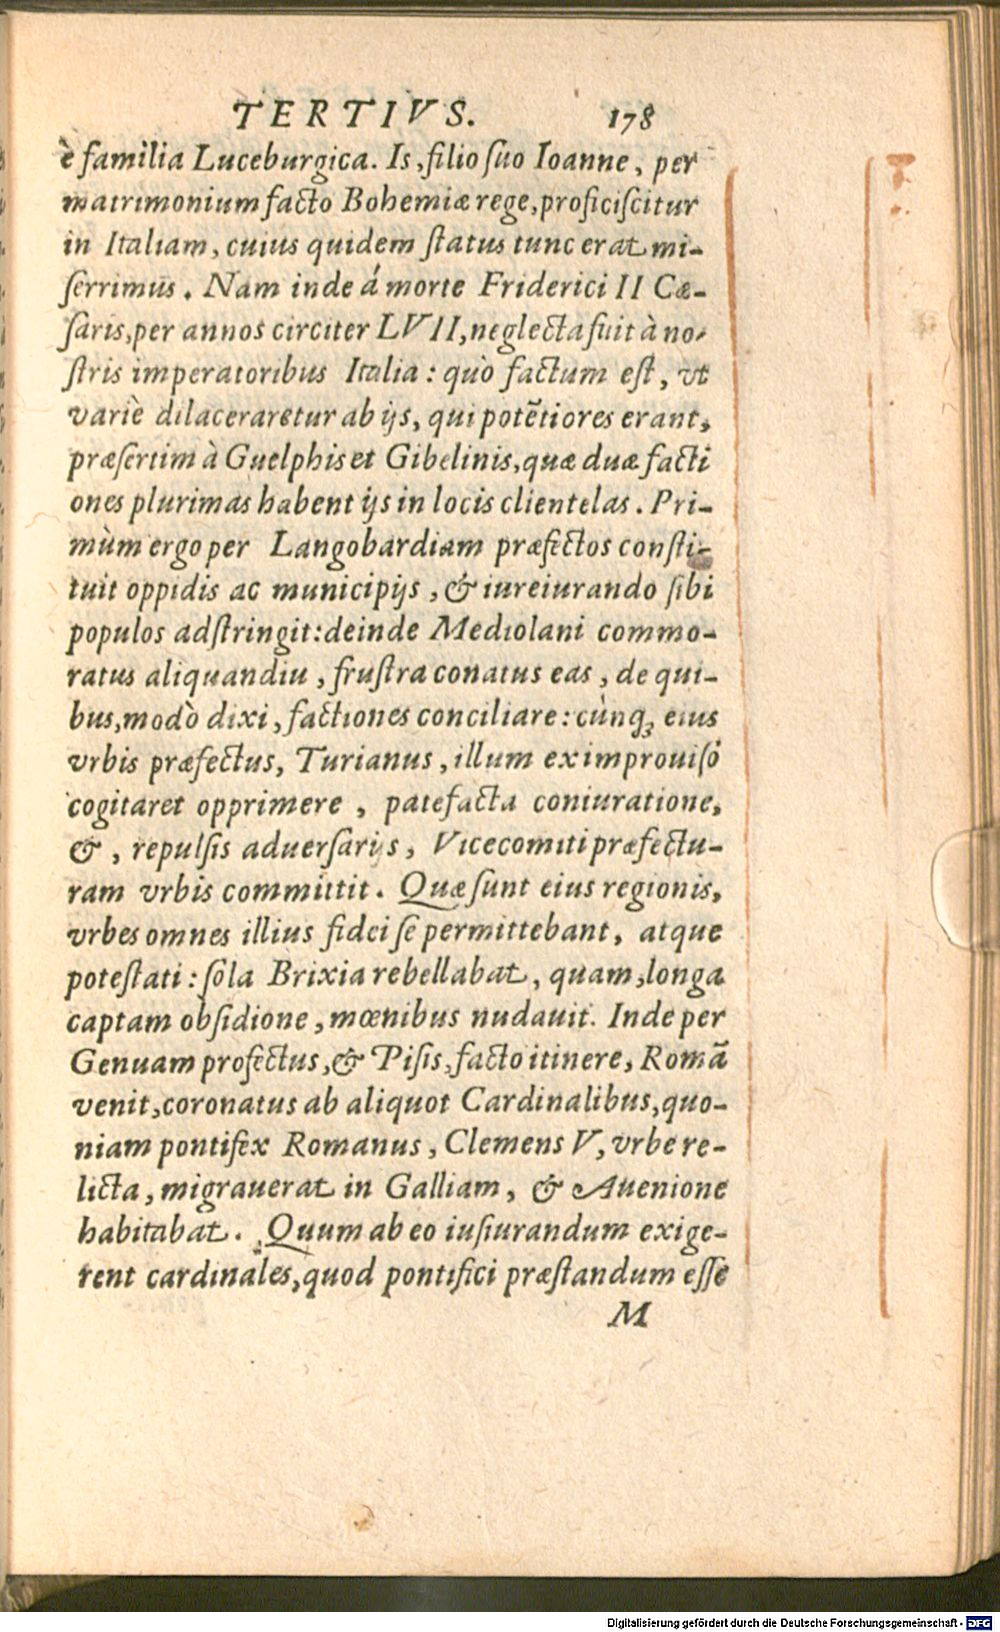 TERTIVS. 178
è familia Luceburgica. Is, filio ſuo Ioanne, per
matrimonium facto Bohemiæ rege, proficiſcitur
in Italiam, cuius quidem ſtatus tunc erat mi-
ſerrimus. Nam inde á morte Friderici II Cæ-
ſaris, per annos circiter LVII, neglecta fuit à no-
ſtris imperatoribus Italia: quò factum eſt, vt
variè dilaceraretur ab ijs, qui potētiores erant,
præſertim à Guelphis et Gibelinis, quæ duæ facti
ones plurimas habent ijs in locis clientelas. Pri-
mùm ergo per Langobardiam præfectos conſti-
tuit oppidis ac municipijs, & iureiurando ſibi
populos adſtringit: deinde Mediolani commo-
ratus aliquandiu, fruſtra conatus eas, de qui-
bus, modò dixi, factiones conciliare: cùnq; eius
vrbis præfectus, Turianus, illum ex improuiſo
cogitaret opprimere, patefacta coniuratione,
&, repulſis aduerſarijs, Vicecomiti præfectu-
ram vrbis committit. Quæ ſunt eius regionis,
vrbes omnes illius fidei ſe permittebant, atque
poteſtati: ſola Brixia rebellabat, quam, longa
captam obſidione, mœnibus nudauit. Inde per
Genuam profectus, & Piſis, facto itinere, Romā
venit, coronatus ab aliquot Cardinalibus, quo-
niam pontifex Romanus, Clemens V, vrbe re-
licta, migrauerat in Galliam, & Auenione
habitabat. Quum ab eo iuſiurandum exige-
rent cardinales, quod pontifici præſtandum eſſe
M
Digitalisierung gefördert durch die Deutsche Forschungsgemeinschaft - DFG